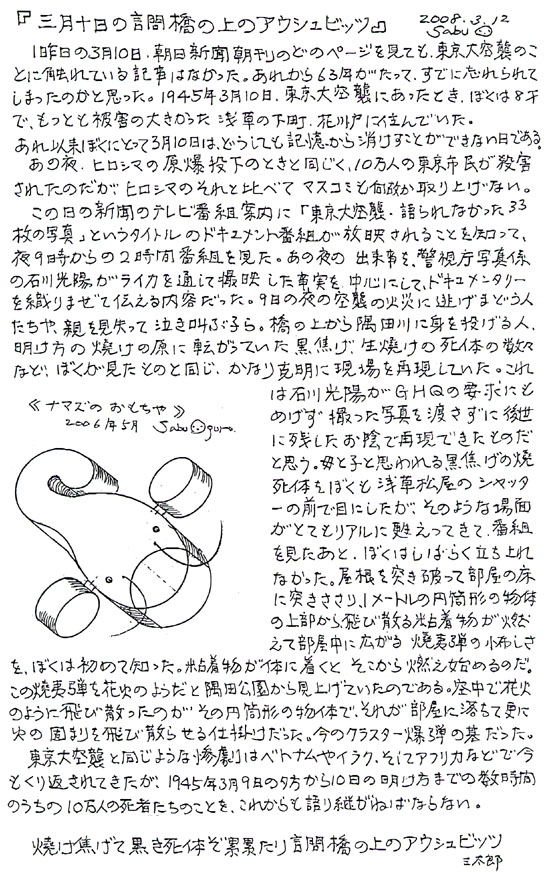 『三月十日の言問橋の上のアウシュビッツ』 2008.3.12
Sabu
1昨日の3月10日、朝日新聞朝刊のどのページを見ても、東京大空襲のこ
とに触れている記事はなかった。あれから63年がたって、すでに忘れられて
しまったのかと思った。1945年3月10日、東京大空襲にあったとき、ぼくは8才
で、もっとも被害の大きかった浅草の下町、花川戸に住んでいた。
あれ以来ぼくにとって3月10日は、どうしても記憶から消すことができない日である。
あの夜、ヒロシマの原爆投下のときと同じく、10万人の東京市民が殺害
されたのだが、ヒロシマのそれと比べてマスコミも何故か取り上げない。
この日の新聞のテレビ番組案内に「東京大空襲・語られなかった33
枚の写真」というタイトルのドキュメント番組が放映されることを知って、
夜9時からの2時間番組を見た。あの夜の出来事を、警視庁写真係
の石川光陽がライカを通して撮映した事実を中心にして、ドキュメンタリー
を織りまぜて伝える内容だった。9日の夜の空襲の火災に逃げまどう人
たちや、親を見失って泣き叫ぶ子ら。橋の上から隅田川に身を投げる人、
明け方の焼けの原に転がっていた黒焦げ、生焼けの死体の数々
など、ぼくが見たものと同じ、かなり克明に現場を再現していた。これ
は石川光陽がGHQの要求にも
めげず撮った写真を渡さずに後世
に残したお陰で再現できたものだ
と思う。母と子と思われる黒焦げの焼
死体をぼくも浅草松屋のシャッタ
ーの前で目にしたが、そのような場面
がとてもリアルに甦えってきて、番組
を見たあと、ぼくはしばらく立ち上れ
なかった。屋根を突き破って部屋の床
に突きささり、1メートルの円筒形の物体
の上部から飛び散る粘着物が燃
えて部屋中に広がる焼夷弾の怖しさ
《ナマズのおもちゃ》
2006年5月 Sabu Oguro.
を、ぼくは初めて知った。粘着物が体に着くとそこから燃え始めるのだ。
この焼夷弾を花火のようだと隅田公園から見上げていたのである。空中で花火
のように飛び散ったのがその円筒形の物体で、それが部屋に落ちて更に
火の固まりを飛び散らせる仕掛けだった。今のクラスター爆弾の基だった。
東京大空襲と同じような惨劇はベトナムやイラク、そしてアフリカなどで今
もくり返されてきたが、1945年3月9日の夕方から10日の明け方までの数時間
のうちの10万人の死者たちのことを、これからも語り継がねばならない。
焼け焦げて黒き死体ぞ累累たり言問橋の上のアウシュビッツ
三太郎